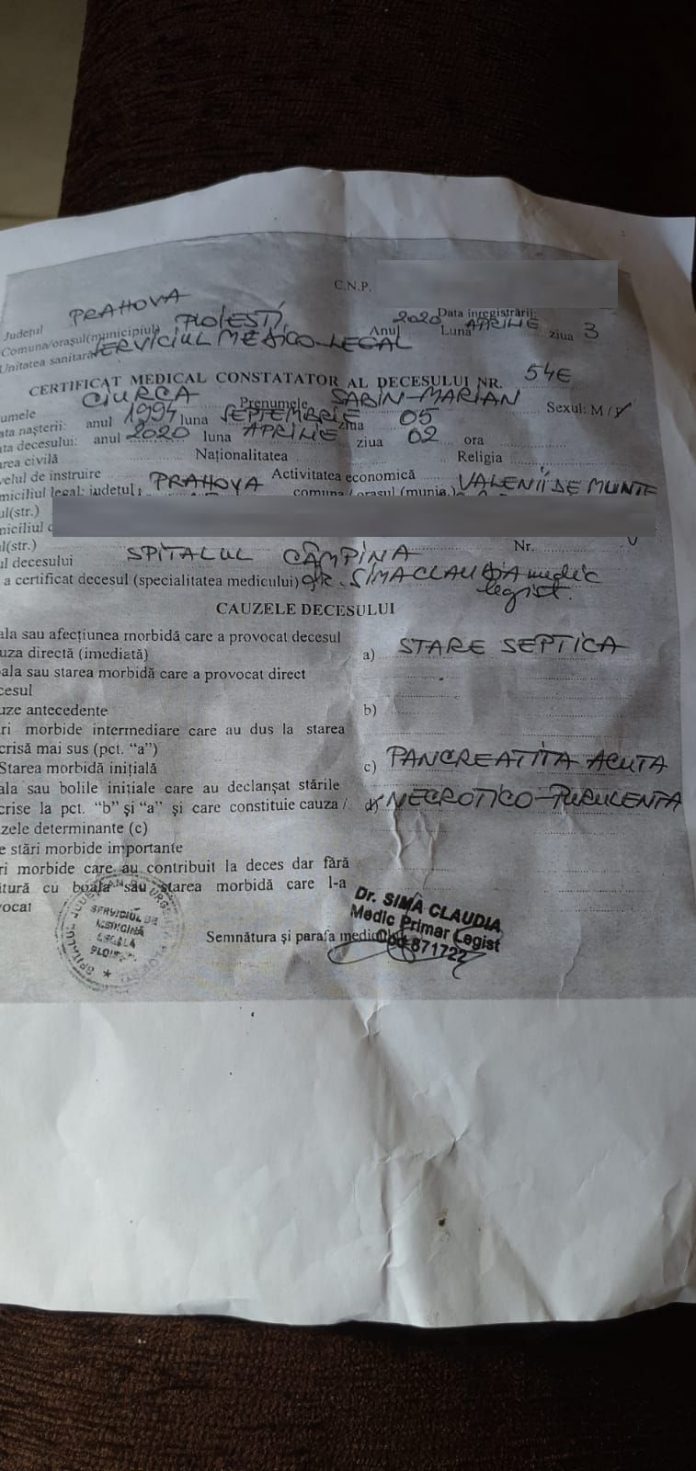 C.N.P.
Județul PRAHOVA
Data înregistrării:
Comuna/orașul(municipiul) PLOIEȘTI Anul 2020 Luna APRILIE ziua 3
Unitatea sanitară SERVICIUL MEDICO-LEGAL
CERTIFICAT MEDICAL CONSTATATOR AL DECESULUI NR. 54E
umele CIURCA Prenumele SABIN-MARIAN Sexul: M /
ata nașterii: anul 1994 luna SEPTEMBRIE ziua 05
ta decesului: anul 2020 luna APRILIE ziua 02 ora
area civilă Naționalitatea Religia
velul de instruire Activitatea economică
miciliul legal: județul PRAHOVA comuna / orașul (munic. VALENII DE MUNTE
ul(str.)
miciliul
ul(str.) Nr.
ul decesului SPITALUL CÂMPINA
a certificat decesul (specialitatea medicului) DR. SIMA CLAUDIA medic
legist.
CAUZELE DECESULUI
ala sau afecțiunea morbidă care a provocat decesul
uza directă (imediată) a) STARE SEPTICA
oala sau starea morbidă care a provocat direct
cesul
uze antecedente b)
ri morbide intermediare care au dus la starea
crisă mai sus (pct. “a”)
Starea morbidă inițială c) PANCREATITA ACUTA
ala sau bolile inițiale care au declanșat stările
crise la pct. “b” și “a” și care constituie cauza / NECROTICO-PURULENTA
zele determinante (c)
e stări morbide importante
ri morbide care au contribuit la deces dar fără
tură cu boala sau starea morbidă care l-a
vocat
SERVICIUL DE
MEDICINĂ
LEGALĂ
PLOIEȘTI
Semnătura și parafa medicului
Dr. SIMA CLAUDIA
Medic Primar Legist
Cod 871722